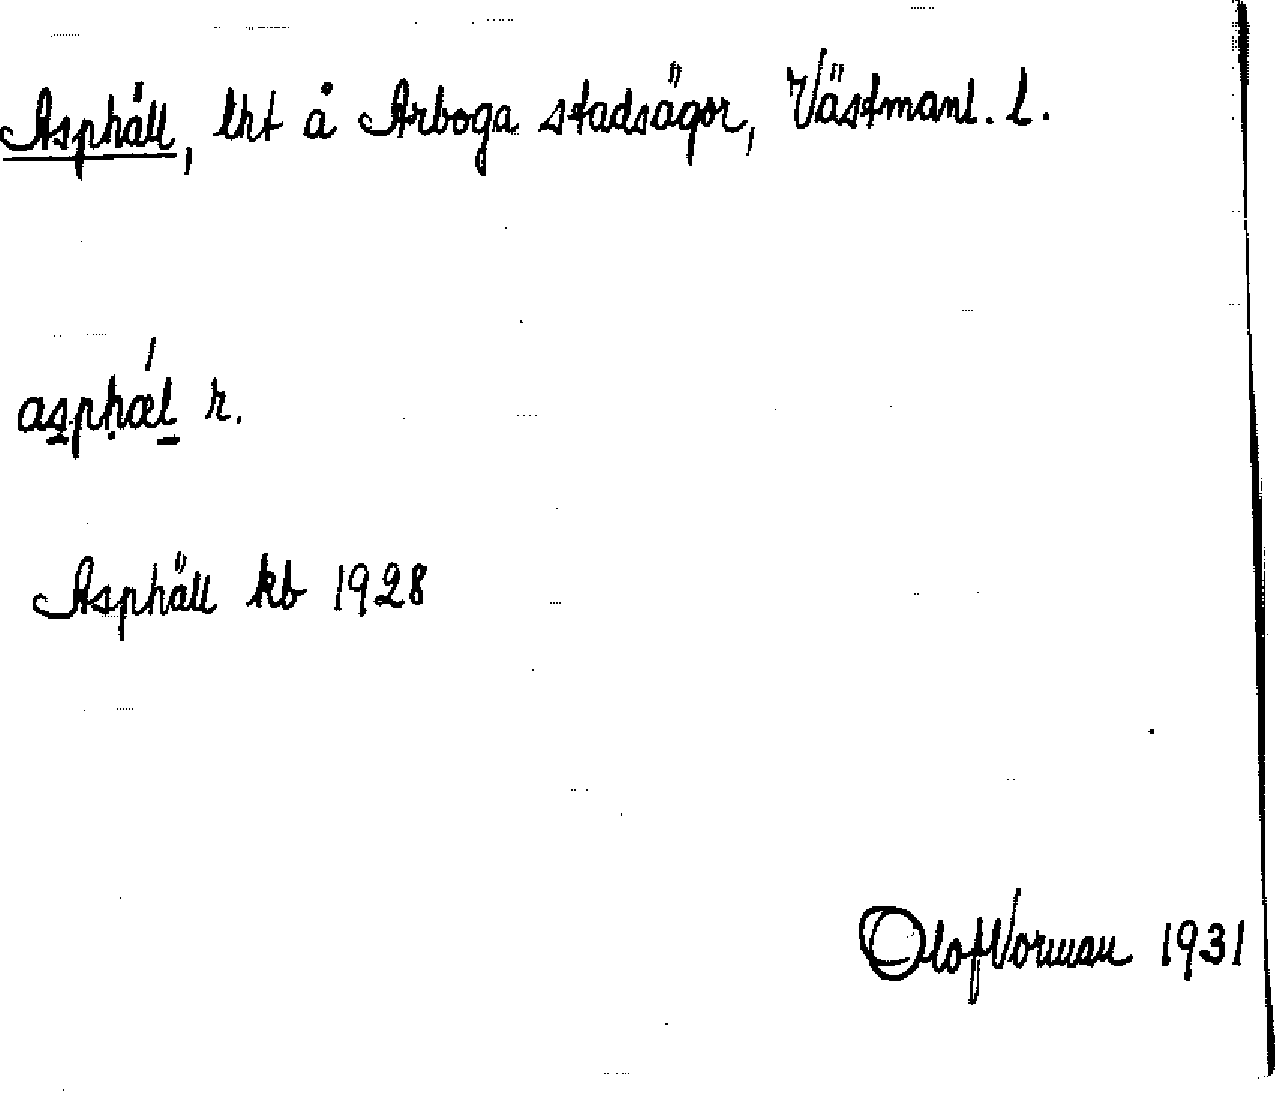 Asphäll, lht å Arboga stadsägor, Västmanl. l.
asphæ̍l r.
Asphäll kb 1928
Olof Vorman 1931